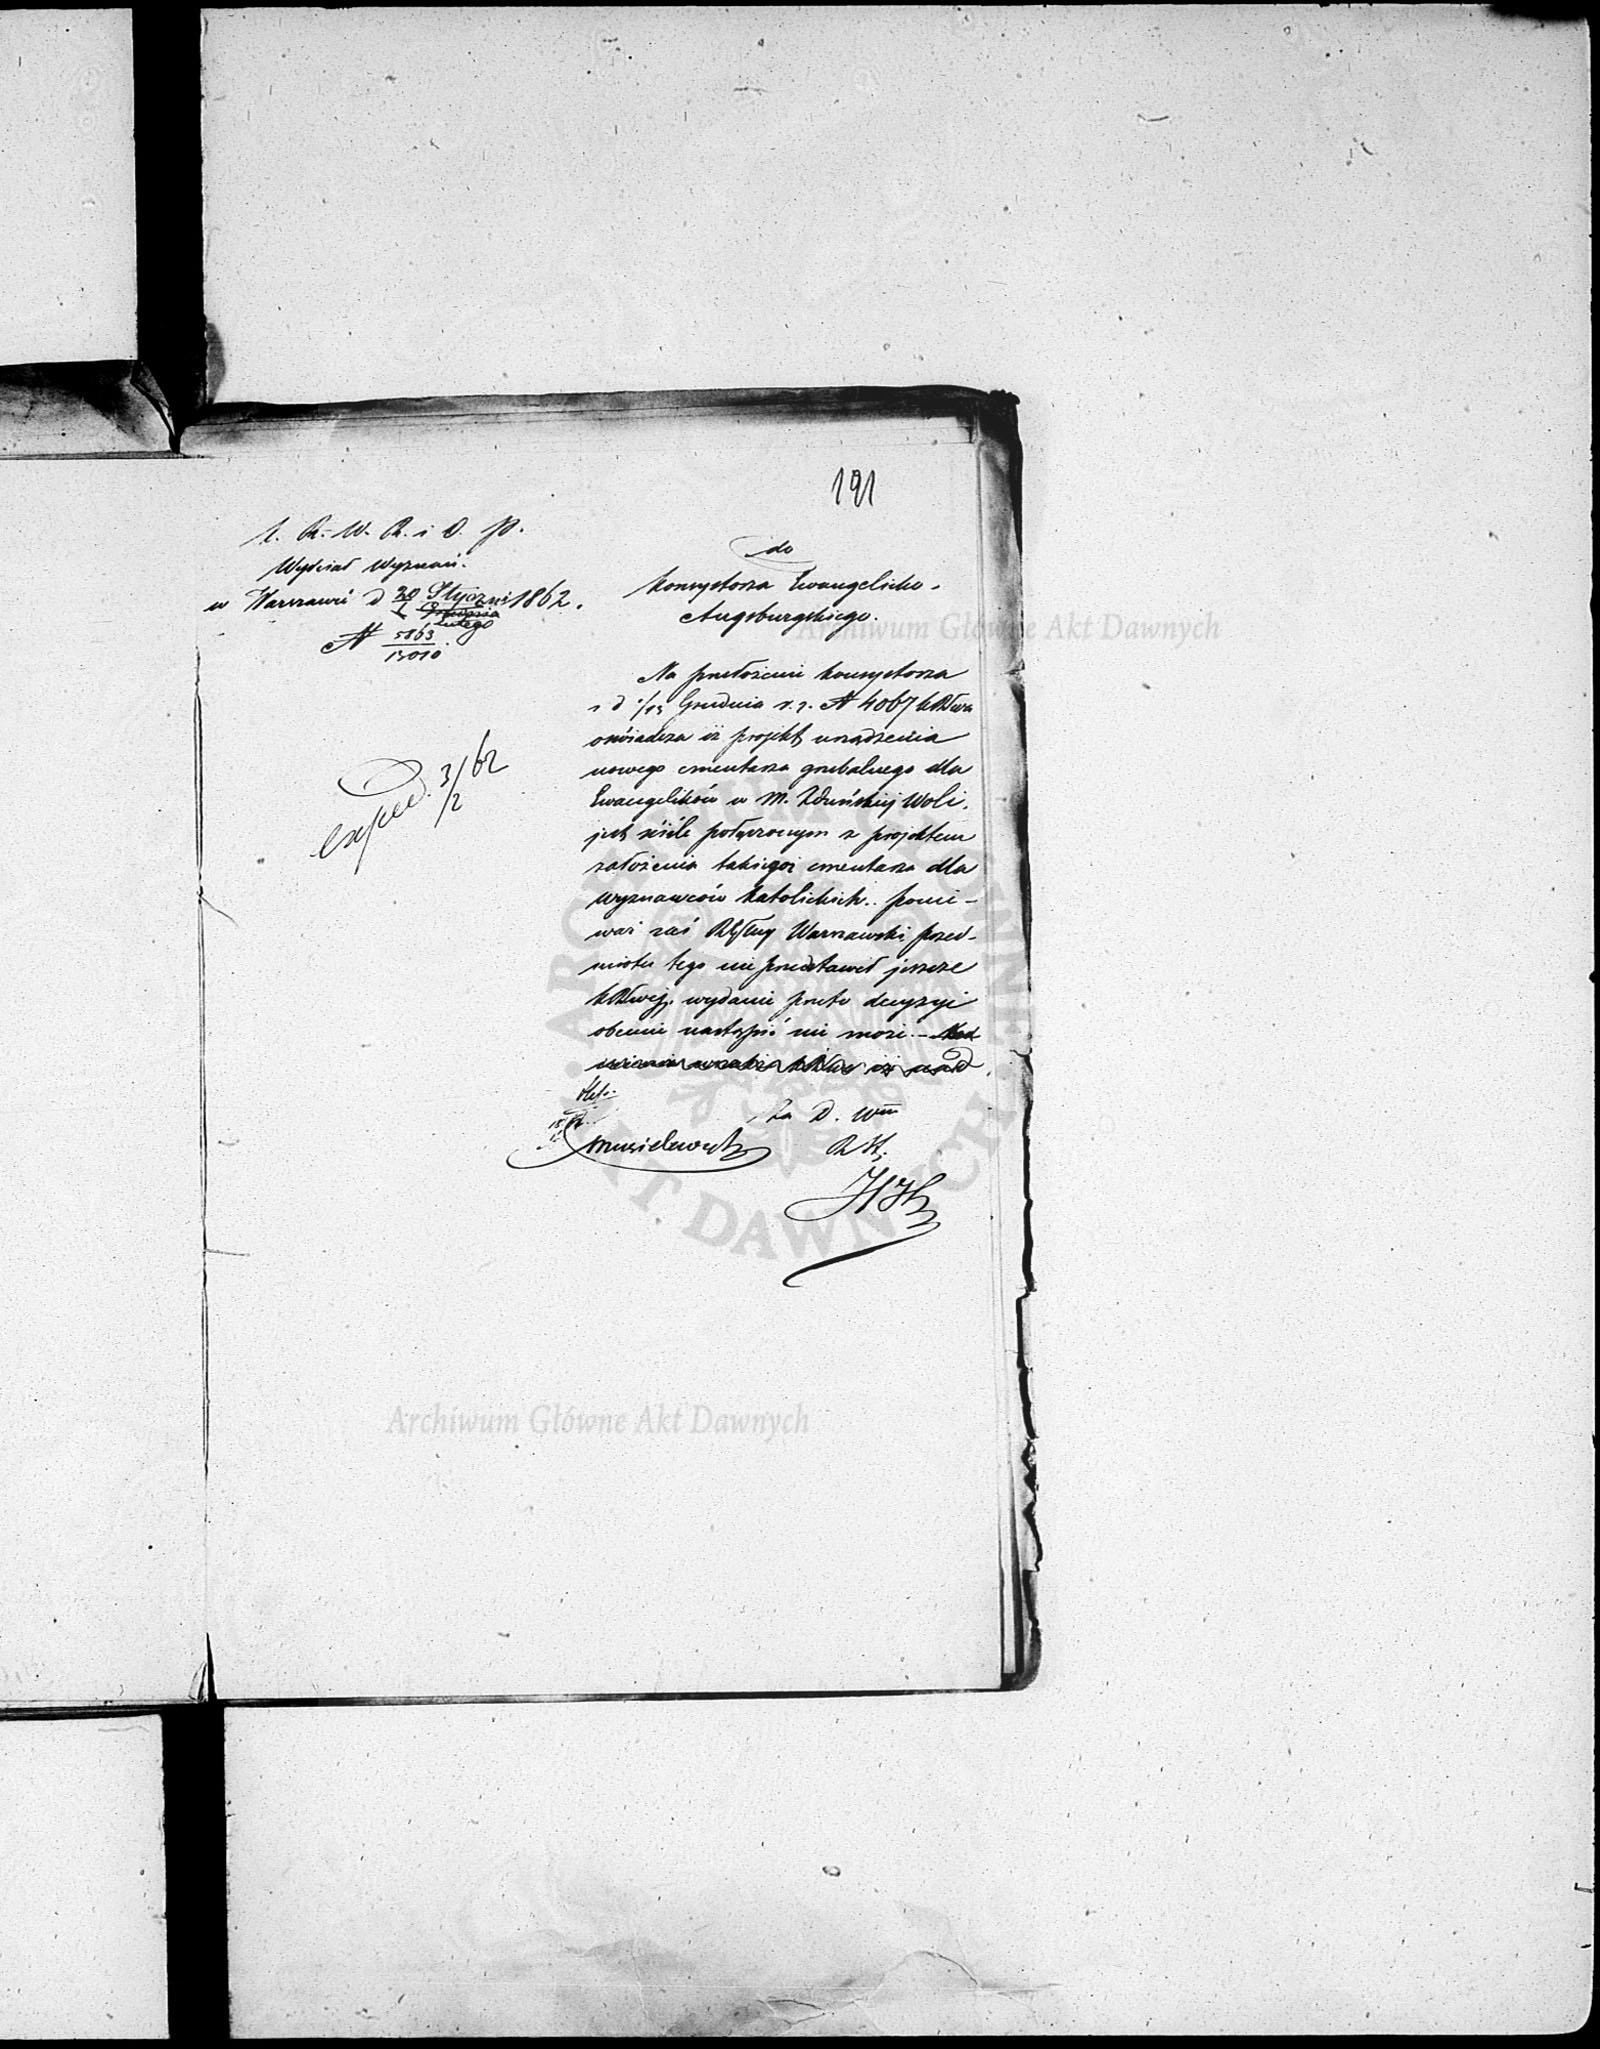 191
K. R. W. R. i O. P.
Wydział Wyznań.
w Warszawie d 20 Stycznia 1862.
1 Lutego
N 5863
13010
exped. 3/2 62
do
Konsystorza Ewangelicko-
Augsburgskiego.
Na przełożenie Konsystorza
z d 1/13 Grudnia r. z. N 4067 KRwa
oświadcza iż projekt urządzenia
nowego cmentarza grzebalnego dla
Ewangelików w M. Zduńskiej Woli,
jest ściśle połączonym z projektem
założenia takiegoż cmentarza dla
wyznawców Katolickich.. ponie-
waż zaś Rząd Gub Warszawski przed-
miotu tego nie przedstawił jeszcze
KRwej, wydanie przeto decyzyi
obecnie nastąpić nie może.–
Za D. Wny
Archiwum Główne Akt Dawnych
Archiwum Główne Akt Dawnych